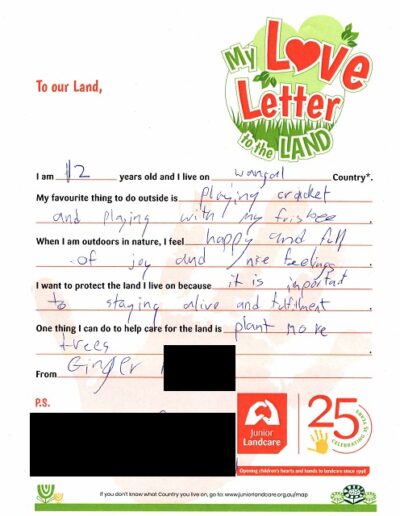 My Love Letter to the LAND
To our Land,
I am 12 years old and I live on wangal Country*.
My favourite thing to do outside is playing cracket
and playing with my frisbee.
When I am outdoors in nature, I feel happy and full
of joy and nice feelings.
I want to protect the land I live on because it is important
to staying alive and fulfilment.
One thing I can do to help care for the land is plant more
trees.
From Ginger
P.S.
Junior Landcare
25 YEARS
CELEBRATING
Opening children's hearts and hands to landcare since 1998
If you don't know what Country you live on, go to: www.juniorlandcare.org.au/map